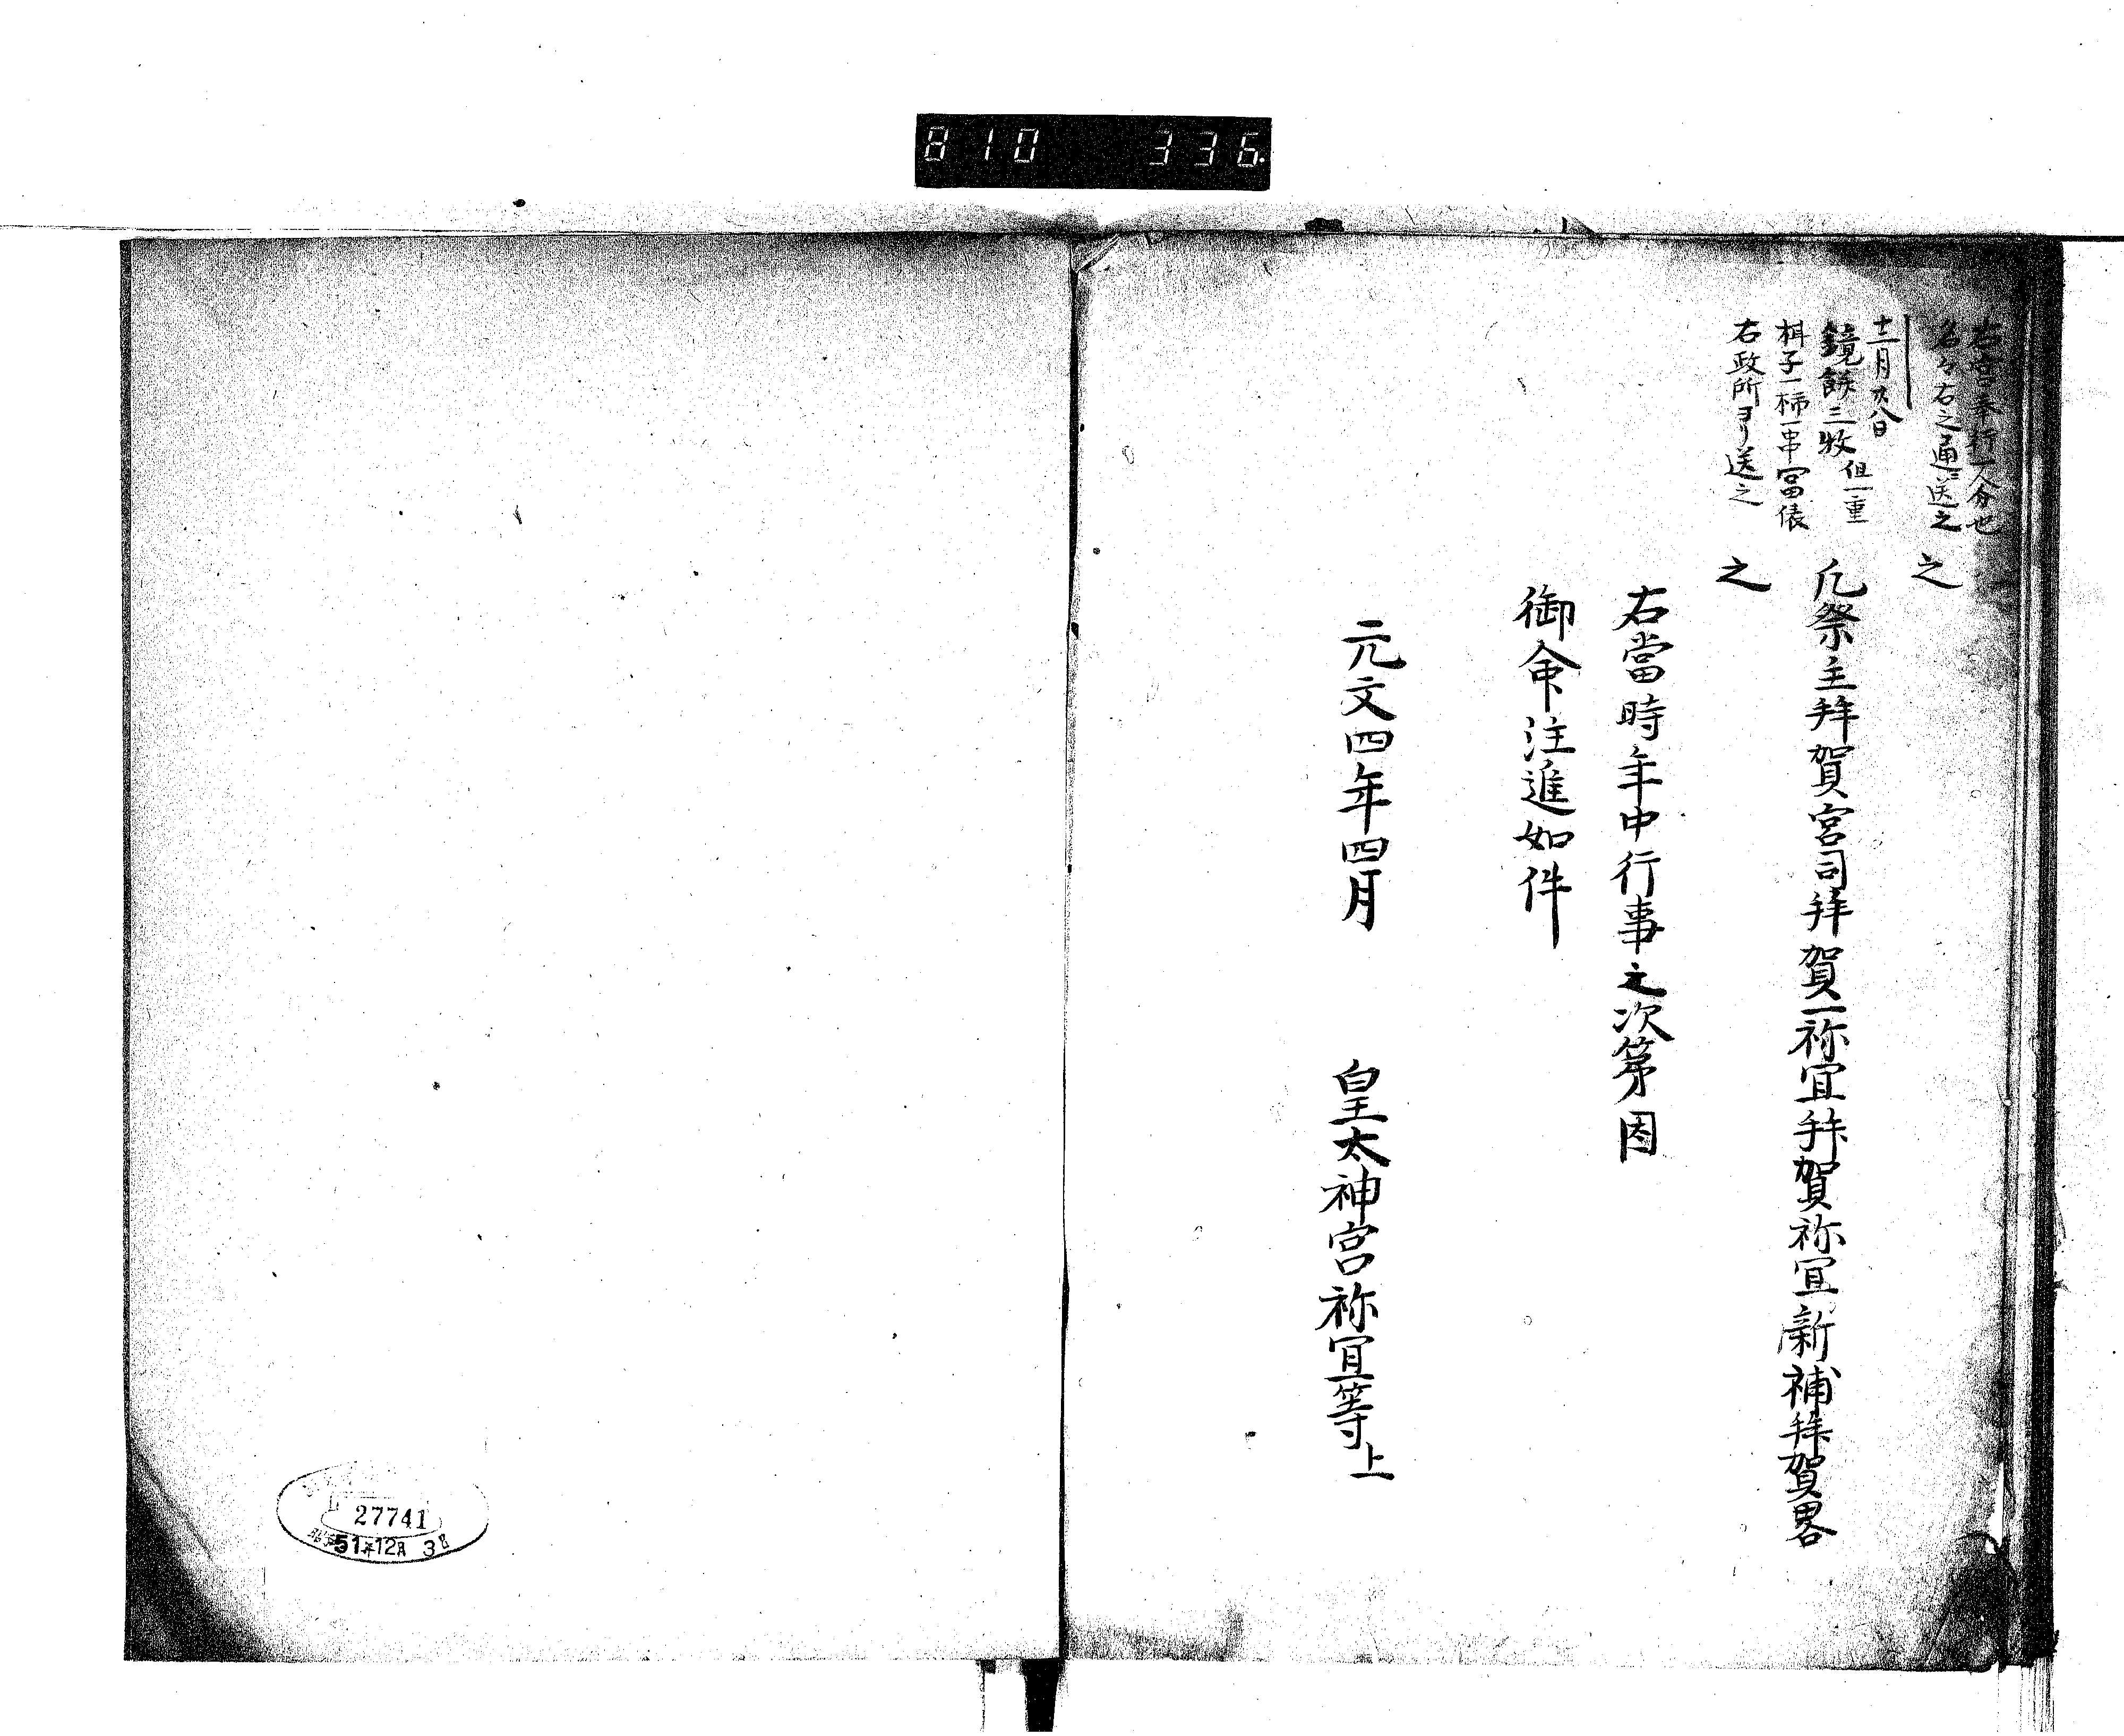 810 336
右宮奉行一人分也
各々右之通ニ送之
十二月廿八日
鏡餅三枚 但一重
柑子一柿一串富俵
右政所ヨリ送之
之
凢祭主拜賀宮司拜賀一祢宜拜賀祢宜新補拜賀畧
之
右當時年中行事之次第因
御命注進如件
元文四年四月
皇太神宮祢宜等上
27741
昭和51年12月3日